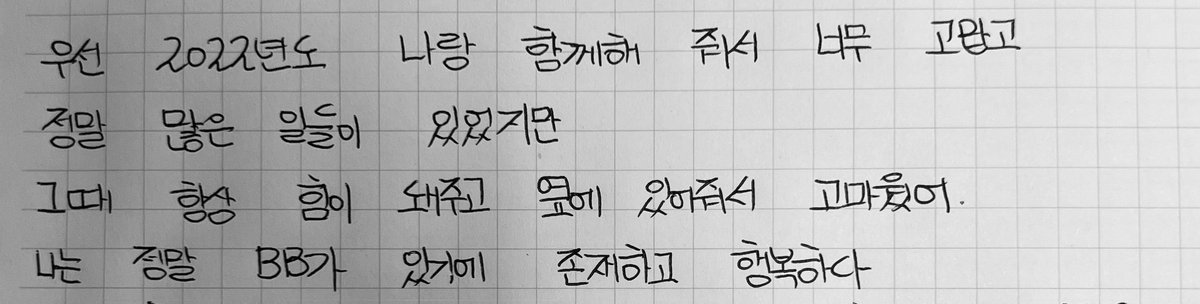 우선 2022년도 나랑 함께해 줘서 너무 고맙고
정말 많은 일들이 있었지만
그때 항상 힘이 돼주고 옆에 있어줘서 고마웠어.
나는 정말 BB가 있기에 존재하고 행복하다